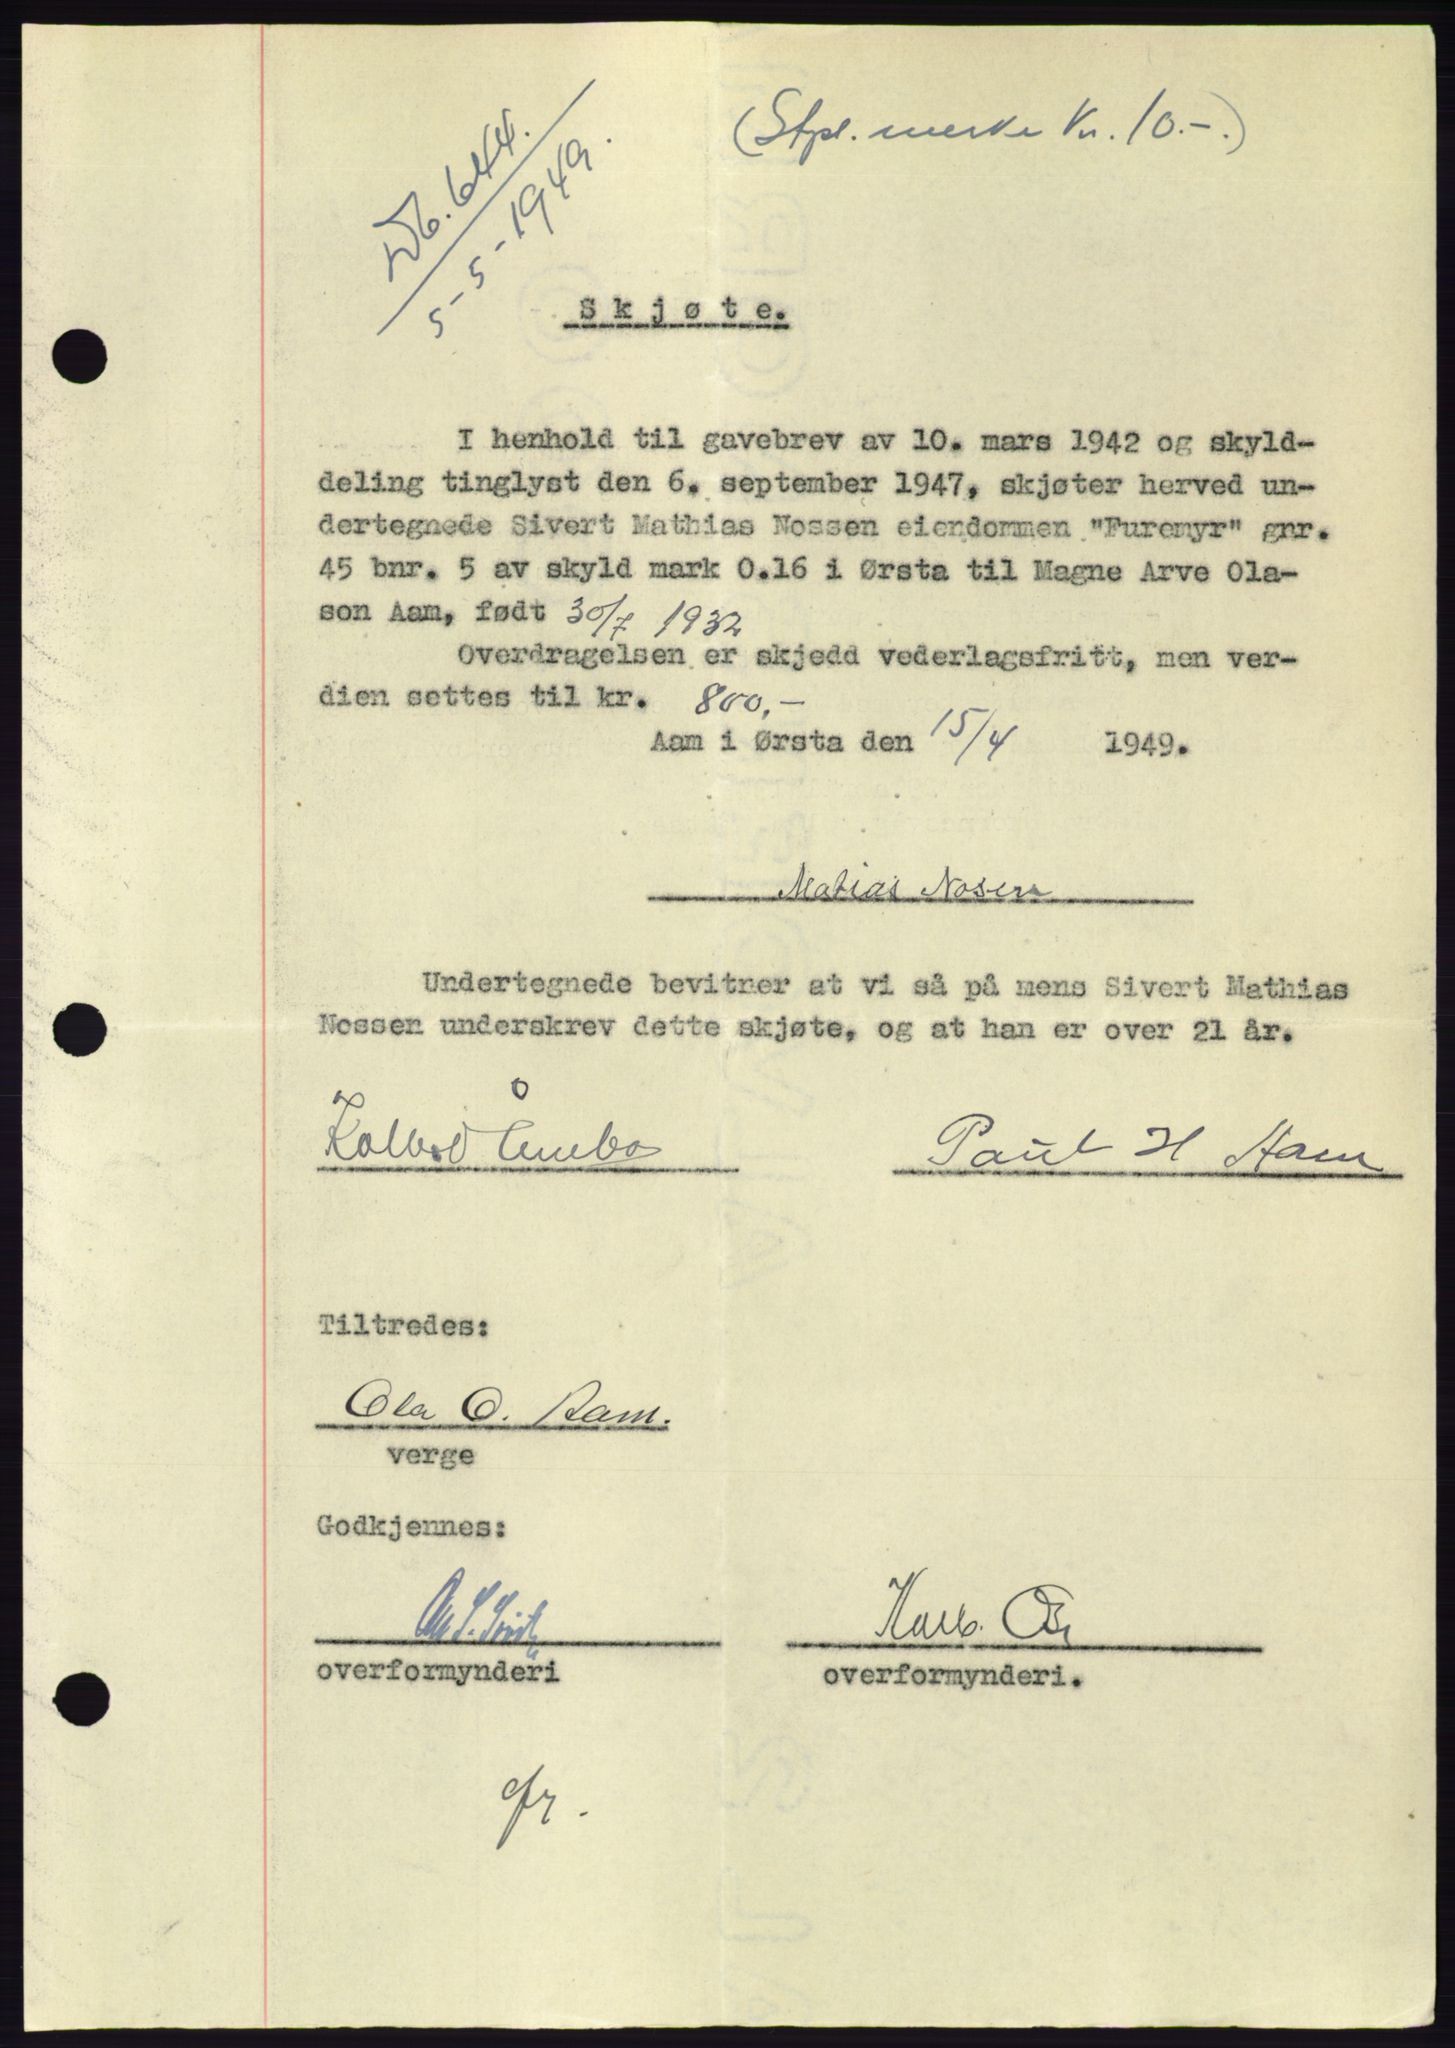 (Stpl. merke Kr. 10.-.)
Db. 644.
5-5-1949.
Skjøte.
I henhold til gavebrev av 10. mars 1942 og skyld-
deling tinglyst den 6. september 1947, skjøter herved un-
dertegnede Sivert Mathias Nossen eiendommen "Furemyr" gnr.
45 bnr. 5 av skyld mark 0.16 i Ørsta til Magne Arve Ola-
son Aam, født 30/7 1932
Overdragelsen er skjedd vederlagsfritt, men ver-
dien settes til kr. 800,-
Aam i Ørsta den 15/4 1949.
Matias Nosen
Undertegnede bevitner at vi så på mens Sivert Mathias
Nossen underskrev dette skjøte, og at han er over 21 år.
Paul H Aam
Tiltredes:
Ola O. Aam.
verge
Godkjennes:
overformynderi
overformynderi.